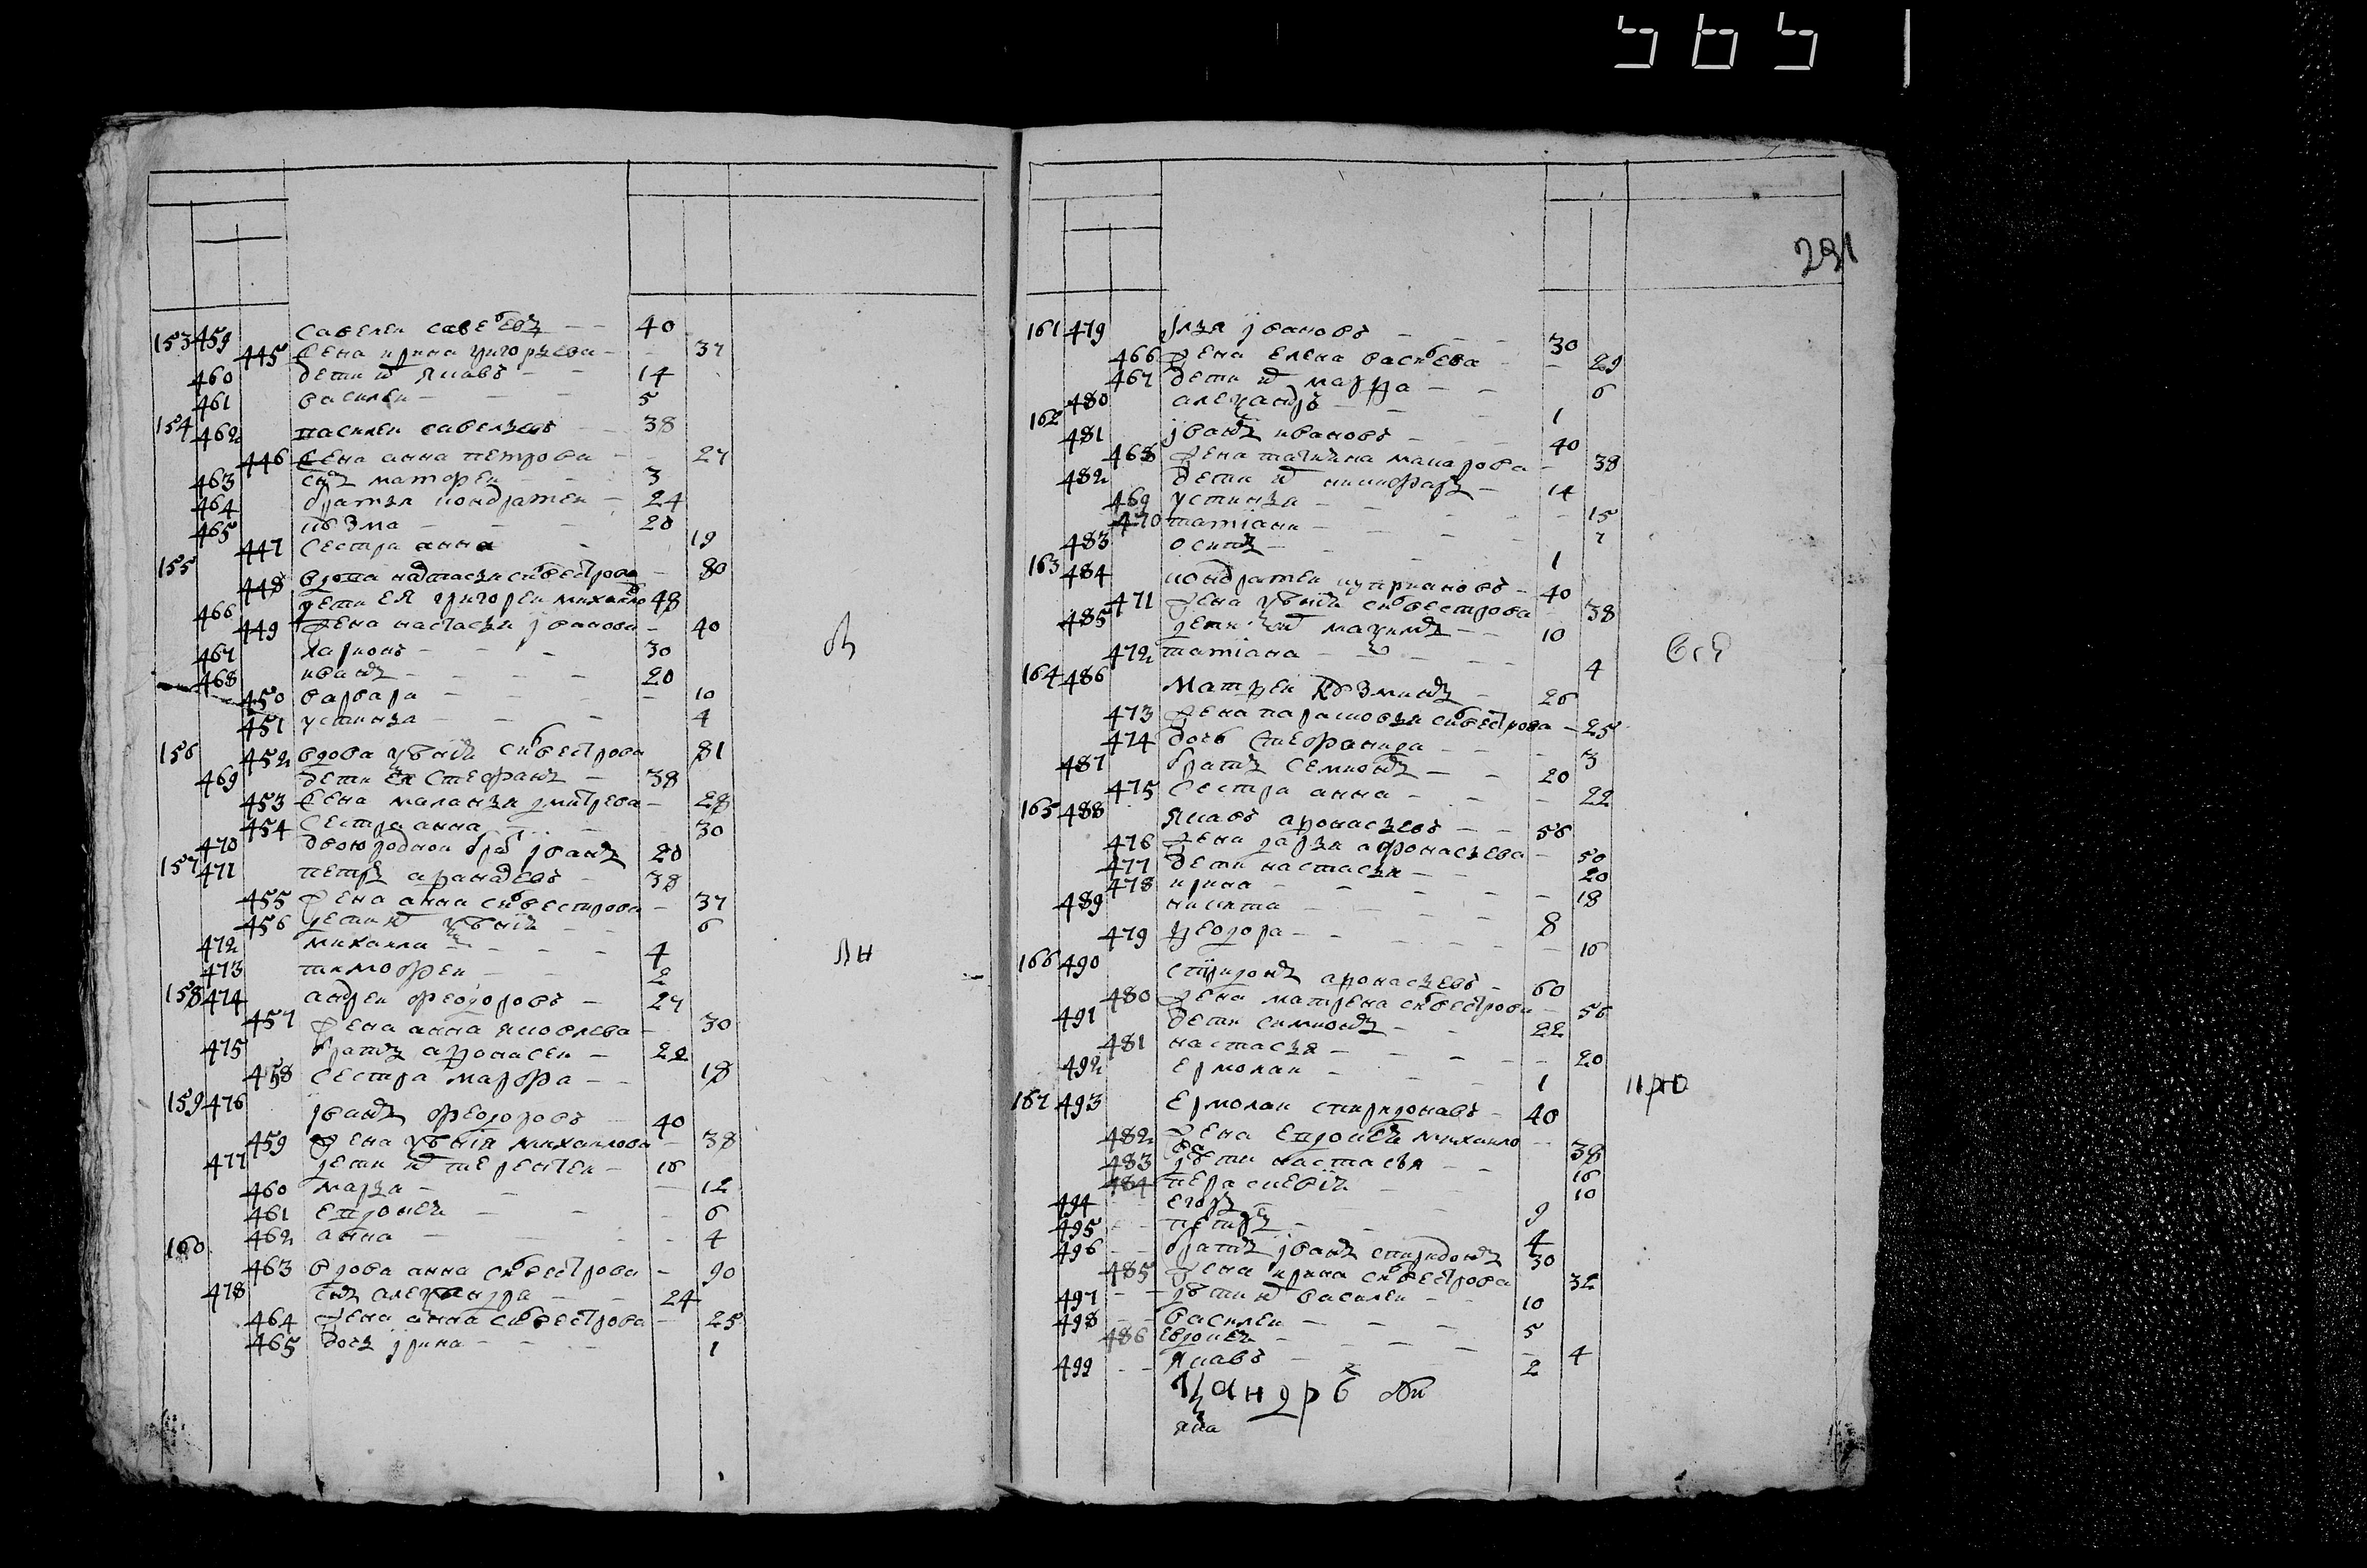 5651
153 459 савелеи савелевъ 40
445 жена ирина григорьева 37
460 дети их яковъ 14
461 василеи 5
154 462 василеи савельевъ 38
446 жена анна петрова 27
463 снъ матфеи 3
464 братья кондратеи 24
465 козма 20
447 сестра анна 19
155 448 вдова настасья силвестрова 80
466 дети ея григореи михаило 48
449 жена настасья iванова 40
467 ларионъ 30
468 иванъ 20
450 варвара 10
451 устинья 4
156 452 вдова силвестрова 81
469 дети ея стефанъ 38
453 жена маланья дмитрева 28
454 сестра анна 30
470 двоюродной братъ iванъ 20
157 471 петръ 38
455 жена анна силвестрова 37
456 дети их 6
472 михаила 4
473 тимофеи 2
ЛН
158 474 андреи феодоровъ 27
457 жена анна яковлева 30
475 братъ афонасеи 22
458 сестра марфа 18
159 476 iванъ феодоровъ 40
459 жена михаилова 38
477 дети их терентеи 16
460 марья 12
461 6
462 анна 4
160
463 вдова анна силвестрова 90
478 снъ алеѯандра 24
464 жена анна силвестрова 25
465 дочь iрина 1
291
161 479 илья iвановъ 30
466 жена елена васильева 29
467 дети их марфа 6
480 алеѯандръ 1
162 481 iванъ ивановъ 40
468 жена татиана макарова 38
482 дети их никифаръ 14
469 устинья 15
470 татiана 7
483 осипъ 1
163 484 кондратеи куприановъ 40
471 жена силвестрова 38
485 дети их маѯимъ 10
472 татiана 4
164 486 матфеи козминъ 26
473 жена парасковья силвестрова 25
474 дочь стефанида 3
487 братъ семионъ 20
475 сестра анна 22
165 488 яковъ афонасьевъ 56
476 жена дарья афонасьева 50
477 дети настасья 20
478 ирина 18
489 никита 8
479 феодора 16
166 490 спиридонъ афонасьевъ 60
480 жена матрена силвестрова 56
491 дети симионъ 22
481 настасья 20
492 ермолаи 1
167 493 ермолаи спиридонавъ 40
482 жена михаило
ва 38
483 дѣти настасья 16
484 перасковiя 10
494 егоръ 9
495 петръ 4
496 братъ iванъ спиридонъ 30
485 жена ирина силвестрова 32
497 дѣти их василеи 10
498 василеи 5
486 4
499 яковъ 2